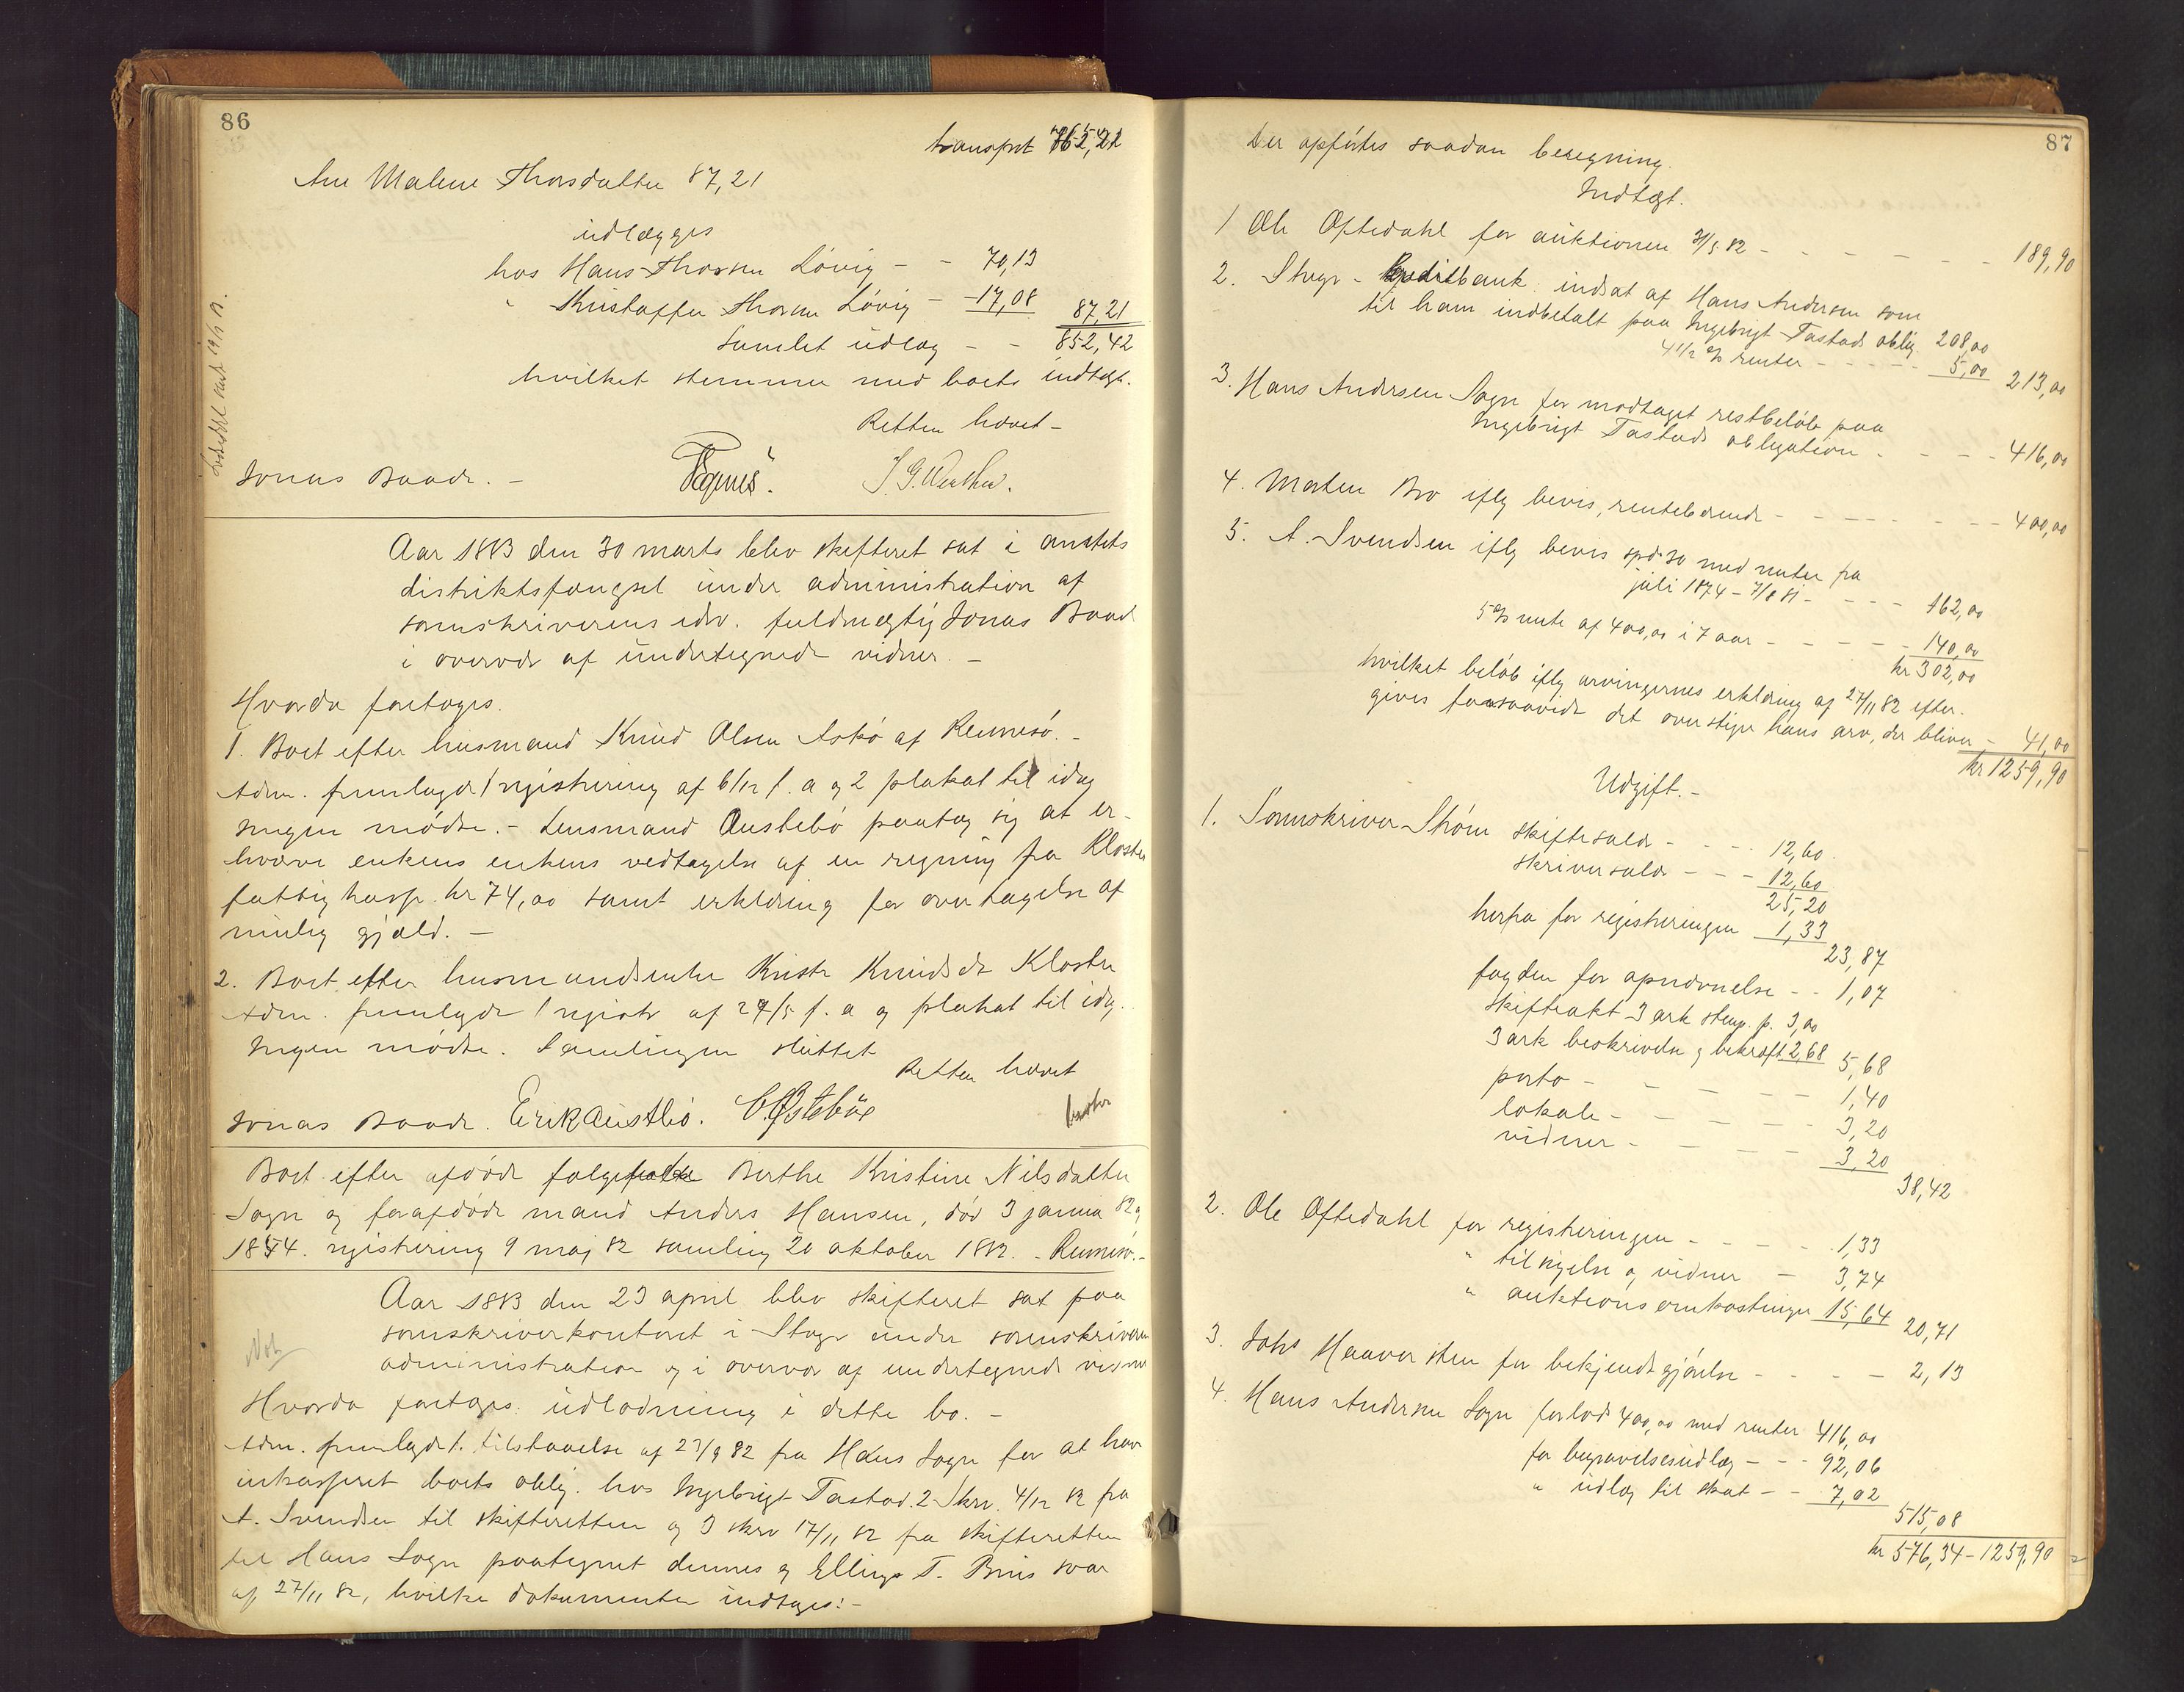 86
transport 765,21
Ane Malene Thorsdatter 87,21
udlægges
hos Hans Thorsen Løvig - - 70,13
" Kristoffer Thorsen Løvig - 17,08 87,21
Samlet udlæg - - 852,42
hvilket stemmer med boets indtægt.
Retten hævet -
Jonas Baade. -
Aar 1883 den 30 marts blev skifteret sat i amtets
distriktsfængsel under administration af
sorenskriverens edsv. fuldmægtig Jonas Baade
i overvær af undertegnede vidner. -
Hvorda foretoges.
1. Boet efter husmand Knud Olsen Askø af Rennesø. -
Adm. fremlagde 1 registrering af 6/12 f. a og 2 plakat til idag
Ingen mødte. - Lensmand Austebø paatog sig at er-
hverve enkens enkens vedtagelse af en regning fra Kloster
fattigkasse kr 74,00 samt erklæring for overtagelse af
mulig gjæld. -
2. Boet efter husmandsenke Kristi Knudsdr Kloster
Adm. fremlagde 1 registr af 27/5 f. a og plakat til idag.
Ingen mødte. Samlingen sluttet
Retten hævet
Jonas Baade. Erik Austbø. C. Østebøe
Boet efter afdøde folge Berthe Kristine Nilsdatter
Sogn og forafdøde mand Anders Hansen, død 3 januar 82 og
1854. registrering 9 maj 82 samling 20 oktober 1882. - Rennesø. -
Aar 1883 den 23 april blev skifteret sat paa
sorenskriverkontoret i Stvgr under sorenskriverens
administration og i overvær af undertegnede vidner
Not
Hvorda foretoges: udlodning i dette bo. -
Adm. fremlagde 1. tilstaaelse af 27/9 82 fra Hans Sogn for at have
inkasseret boets oblig. hos Ingebrigt Tastad. 2 Skr. 4/12 82 fra
A. Svendsen til skifteretten og 3 skr 17/11 82 fra skifteretten
til Hans Sogn paategnet dennes og Ellings T. Bruis svar
af 27/11 82, hvilke dokumenter indtages: -
87
Der opførtes saadan beregning.
Indtægt.
1 Ole Oftedahl for auktionen 3/5 82 - - - - - - 189,90
2. Stvgr - Kreditbank indsat af Hans Andersen som
til ham indbetalt paa Ingebrigt Tastads oblig 208,00
4 1/2 % renter - - - - - 5,00 213,00
3. Hans Andersen Sogn for modtaget restbeløb paa
Ingebrigt Tastads obligation - - - - 416,00
4. Morten Bro iflg bevis, rentebærende - - - - - - - 400,00
5. A. Svendsen iflg bevis spd 30 med renter fra
juli 1874 - 7/8 81 - - - - 162,00
5 % rente af 400,00 i 7 aar - - - - - 140,00
kr 302,00
hvilket beløb iflg arvingernes erklæring af 27/11 82 efter-
gives forsaavidt det overstiger hans arv, der bliver - 41,00
kr 1259,90
Udgift. -
1. Sorenskriver Strøm skiftesalær - - - - 12,60
skriversalær - - - 12,60
25,20
herfra for registreringen 1,33
23,87
fogden for opnævnelse - - 1,07
skifteakt 3 ark stemp. p. 3,00
3 ark beskrivelse og bekræft. 2,68 5,68
porto - - - - - 1,40
lokale - - - - - 3,20
vidner - - - - - 3,20
38,42
2. Ole Oftedahl for registreringen - - - - - 1,33
" tilsigelse og vidner - 3,74
" auktionsomkostninger 15,64 20,71
3. Johs Haaversten for bekjendtgjørelse - - - - - 2,13
4. Hans Andersen Sogn forlods 400,00 med renter 416,00
for begravelsesudlæg - - - 92,06
" udlæg til skat - - 7,02
515,08
kr 576,34 - 1259,90